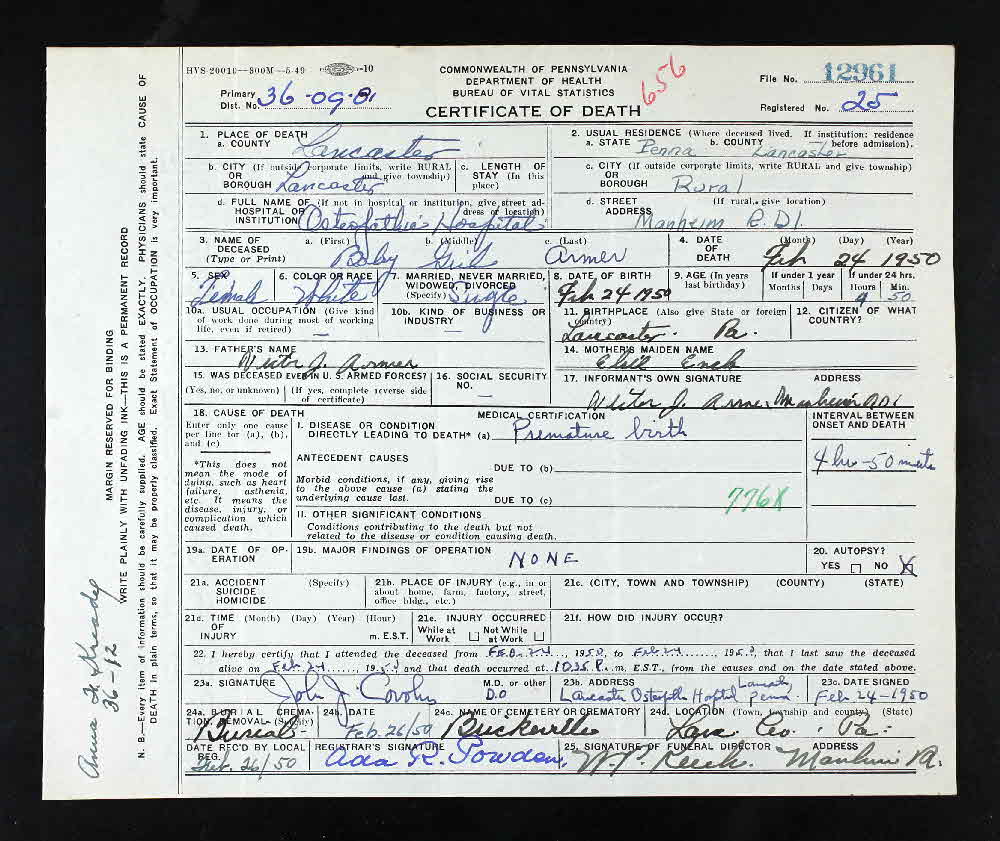 HVS-20010—800M—5-49 -10
COMMONWEALTH OF PENNSYLVANIA
DEPARTMENT OF HEALTH
BUREAU OF VITAL STATISTICS
CERTIFICATE OF DEATH
656
File No. 12961
Primary Dist. No. 36-09-01
Registered No. 25
1. PLACE OF DEATH
a. COUNTY Lancaster
2. USUAL RESIDENCE (Where deceased lived. If institution: residence before admission).
a. STATE Penna b. COUNTY Lancaster
b. CITY (If outside corporate limits, write RURAL and give township)
OR BOROUGH Lancaster
c. LENGTH OF STAY (in this place)
c. CITY (If outside corporate limits, write RURAL and give township)
OR BOROUGH Rural
d. FULL NAME OF (If not in hospital or institution, give street address or location)
HOSPITAL OR INSTITUTION Osteopathic Hospital
d. STREET ADDRESS (If rural, give location)
Manheim R.D1.
3. NAME OF DECEASED (Type or Print)
a. (First) b. (Middle) c. (Last)
Baby Girl Armer
4. DATE OF DEATH (Month) (Day) (Year)
Feb 24 1950
5. SEX Female
6. COLOR OR RACE White
7. MARRIED, NEVER MARRIED, WIDOWED, DIVORCED (Specify) Single
8. DATE OF BIRTH Feb 24 1950
9. AGE (In years last birthday)
If under 1 year Months Days
If under 24 hrs. Hours Min.
4 50
10a. USUAL OCCUPATION (Give kind of work done during most of working life, even if retired) —
10b. KIND OF BUSINESS OR INDUSTRY —
11. BIRTHPLACE (Also give State or foreign country)
Lancaster. Pa.
12. CITIZEN OF WHAT COUNTRY?
13. FATHER'S NAME
J. Armer
14. MOTHER'S MAIDEN NAME
Enck
15. WAS DECEASED EVER IN U. S. ARMED FORCES?
(Yes, no, or unknown) (If yes, complete reverse side of certificate)
16. SOCIAL SECURITY NO. —
17. INFORMANT'S OWN SIGNATURE ADDRESS
J. Armer Manheim RD1
18. CAUSE OF DEATH
Enter only one cause per line for (a), (b), and (c)
*This does not mean the mode of dying, such as heart failure, asthenia, etc. It means the disease, injury, or complication which caused death.
MEDICAL CERTIFICATION
INTERVAL BETWEEN ONSET AND DEATH
I. DISEASE OR CONDITION
DIRECTLY LEADING TO DEATH* (a) Premature birth
4 hrs-50
ANTECEDENT CAUSES
DUE TO (b)
Morbid conditions, if any, giving rise to the above cause (a) stating the underlying cause last.
DUE TO (c)
776X
II. OTHER SIGNIFICANT CONDITIONS
Conditions contributing to the death but not related to the disease or condition causing death.
19a. DATE OF OPERATION
19b. MAJOR FINDINGS OF OPERATION
NONE
20. AUTOPSY?
YES NO X
21a. ACCIDENT SUICIDE HOMICIDE (Specify)
21b. PLACE OF INJURY (e.g., in or about home, farm, factory, street, office bldg., etc.)
21c. (CITY, TOWN AND TOWNSHIP) (COUNTY) (STATE)
21d. TIME OF INJURY (Month) (Day) (Year) (Hour) m. E.S.T.
21e. INJURY OCCURRED
While at Work Not While at Work
21f. HOW DID INJURY OCCUR?
22. I hereby certify that I attended the deceased from Feb. 24, 1950, to Feb. 24, 1950, that I last saw the deceased
alive on Feb. 24, 1950 and that death occurred at 10:35 P.m. E.S.T., from the causes and on the date stated above.
23a. SIGNATURE M.D. or other
John J. D.O
23b. ADDRESS
Lancaster Osteopath Hospital Lancaster Penn.
23c. DATE SIGNED
Feb-24-1950
24a. BURIAL CREMATION, REMOVAL (Specify)
Burial
24b. DATE
Feb. 26/50
24c. NAME OF CEMETERY OR CREMATORY
24d. LOCATION (Town, township and county) (State)
Lanc Co. Pa.
DATE REC'D BY LOCAL REG.
Feb. 26/50
REGISTRAR'S SIGNATURE
Ada R.
25. SIGNATURE OF FUNERAL DIRECTOR ADDRESS
Manheim PA.
MARGIN RESERVED FOR BINDING
WRITE PLAINLY WITH UNFADING INK—THIS IS A PERMANENT RECORD
N. B.—Every item of information should be carefully supplied. AGE should be stated EXACTLY. PHYSICIANS should state CAUSE OF
DEATH in plain terms, so that it may be properly classified. Exact Statement of OCCUPATION is very important.
Anna
36-12